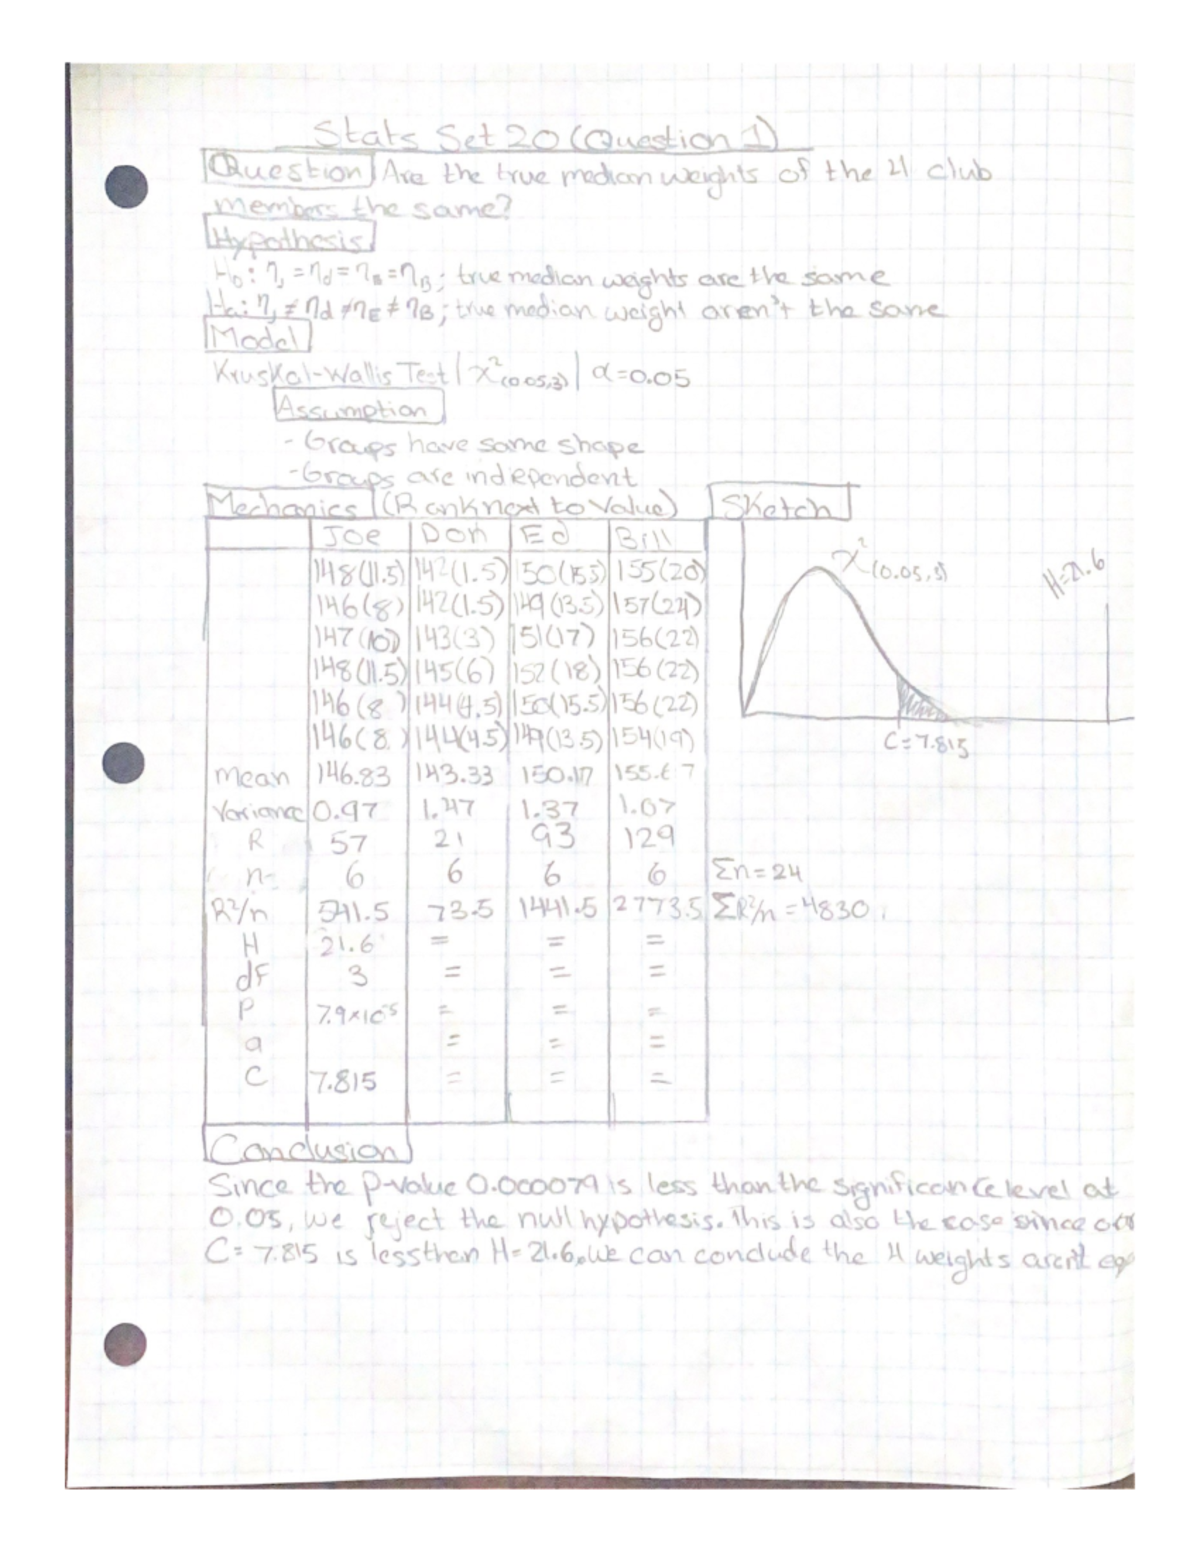 Stats Set 20 (Question 1)
Question Are the true median weights of the 4 club
members the same?
Hypothesis
H₀: ηⱼ = ηd = ηE = ηB; true median weights are the same
Ha: ηⱼ ≠ ηd ≠ ηE ≠ ηB; true median weight aren't the same
Model
Kruskal-Wallis Test | χ²(0.05,3) | α=0.05
Assumption
- Groups have same shape
- Groups are independent
Mechanics (Rank next to Value) Sketch
Joe Don Ed Bill
148(11.5) 142(1.5) 150(15.5) 155(20)
146(8) 142(1.5) 149(13.5) 157(24)
147(10) 143(3) 151(17) 156(22)
148(11.5) 145(6) 152(18) 156(22)
146(8) 144(4.5) 150(15.5) 156(22)
146(8) 144(4.5) 149(13.5) 154(19)
mean 146.83 143.33 150.17 155.67
Variance 0.97 1.47 1.37 1.07
R 57 21 93 129
n= 6 6 6 6 Σn=24
R²/n 541.5 73.5 1441.5 2773.5 ΣR²/n=4830
H 21.6 = = =
df 3 = = =
P 7.9×10⁻⁵ = = =
a = = =
C 7.815 = = =
χ²(0.05,3)
H=21.6
C=7.815
Conclusion
Since the p-value 0.000079 is less than the significance level at
0.05, we reject the null hypothesis. This is also the case since
C= 7.815 is less than H= 21.6, we can conclude the 4 weights aren't